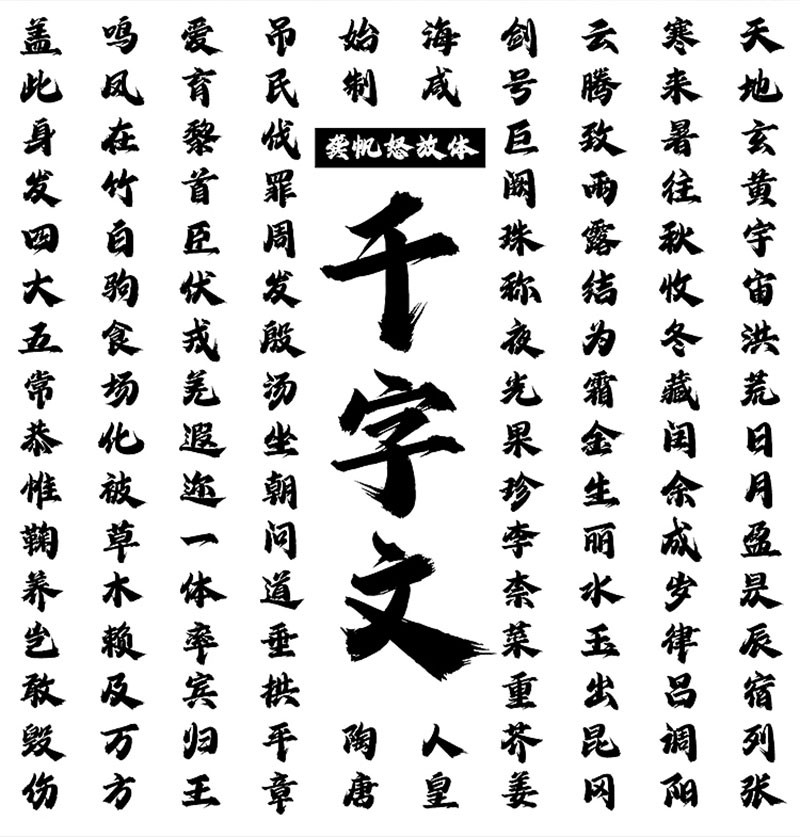 天地玄黄宇宙洪荒日月盈昃辰宿列张
寒来暑往秋收冬藏闰余成岁律吕调阳
云腾致雨露结为霜金生丽水玉出昆冈
剑号巨阙珠称夜光果珍李奈菜重芥姜
海咸
始制
龚帆怒放体
千字文
人皇
陶唐
吊民伐罪周发殷汤坐朝问道垂拱平章
爱育黎首臣伏戎羌遐迩一体率宾归王
鸣凤在竹白驹食场化被草木赖及万方
盖此身发四大五常恭惟鞠养岂敢毁伤